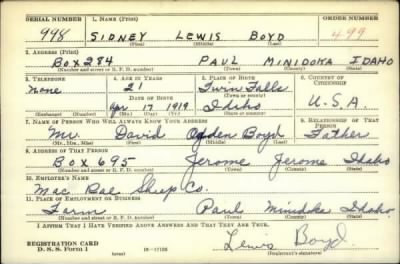 SERIAL NUMBER 1. NAME (Print) ORDER NUMBER
998 SIDNEY LEWIS BOYD 499
(First) (Middle) (Last)
2. ADDRESS (Print)
BOX 284 PAUL MINIDOKA IDAHO
(Number and street or R. F. D. number) (Town) (County) (State)
3. TELEPHONE 4. AGE IN YEARS 5. PLACE OF BIRTH 6. COUNTRY OF CITIZENSHIP
None 21 Twin Falls
DATE OF BIRTH (Town or county)
Apr 17 1919 Idaho U.S.A.
(Exchange) (Number) (Mo.) (Day) (Yr.) (State or country)
7. NAME OF PERSON WHO WILL ALWAYS KNOW YOUR ADDRESS 8. RELATIONSHIP OF THAT PERSON
Mr. David Ogden Boyd Father
(Mr., Mrs., Miss) (First) (Middle) (Last)
9. ADDRESS OF THAT PERSON
BOX 695 Jerome Jerome Idaho
(Number and street or R. F. D. number) (Town) (County) (State)
10. EMPLOYER'S NAME
Mac Rae Sheep Co.
11. PLACE OF EMPLOYMENT OR BUSINESS
Farm Paul Minidoka Idaho
(Number and street or R. F. D. number) (Town) (County) (State)
I AFFIRM THAT I HAVE VERIFIED ABOVE ANSWERS AND THAT THEY ARE TRUE.
REGISTRATION CARD Lewis Boyd.
D. S. S. Form 1 (over)